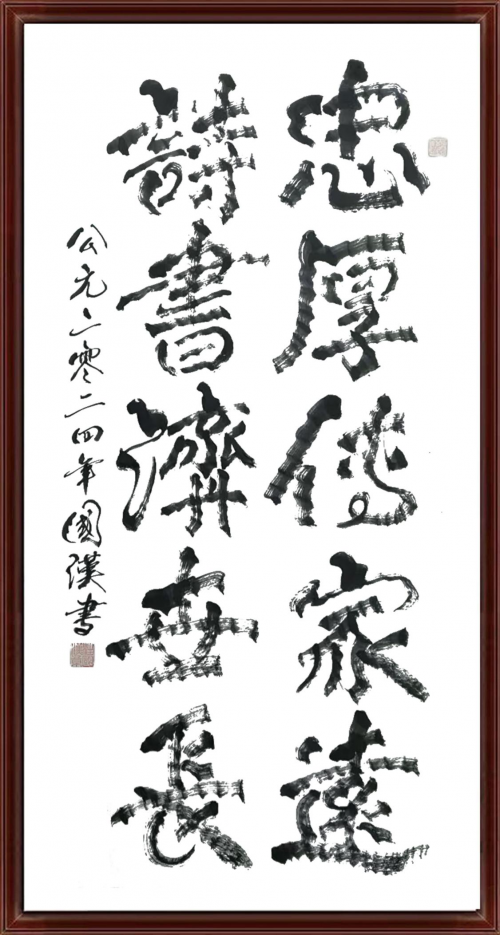 忠厚傳家遠
詩書濟世長
公元二零二四年國漢書